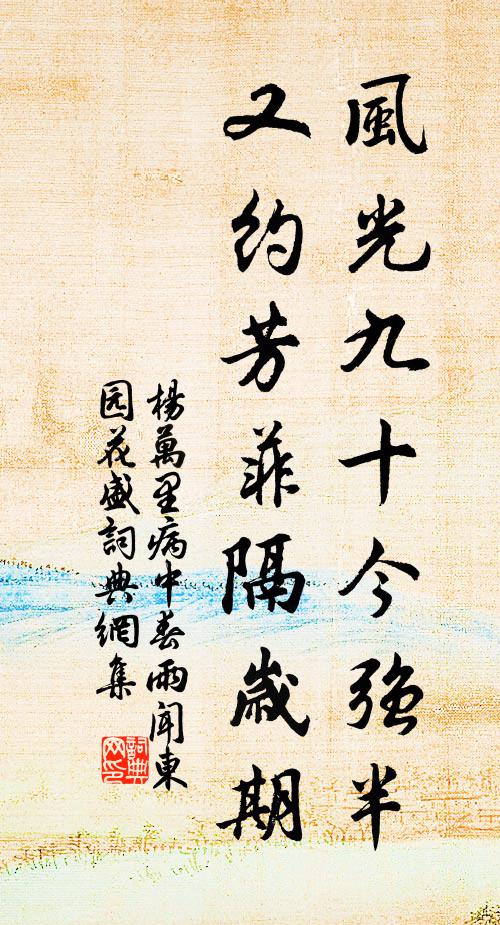 風光九十今強半
又約芳菲隔歲期
楊萬里病中春雨聞東
园花盛詞典網集
詞典
网印